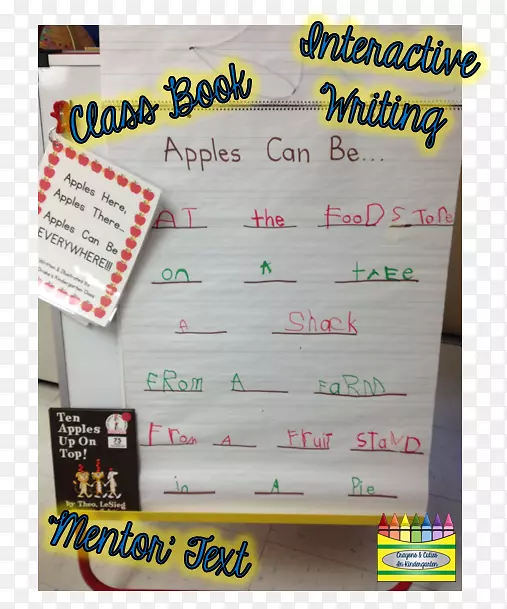 Interactive
Writing
Class Book
Apples Can Be...
Apples Here,
Apples There...
Apples Can Be
EVERYWHERE!!!
Written & Illustrated By
Kindergarten Class
AT the FOODSTORE
on A tREE
A Shack
FROM A FaRM
From A Fruit StaND
in A Pie
Ten
Apples
Up On
Top!
by Theo. LeSieg
'Mentor' Text
Crayons & Cuties
In Kindergarten